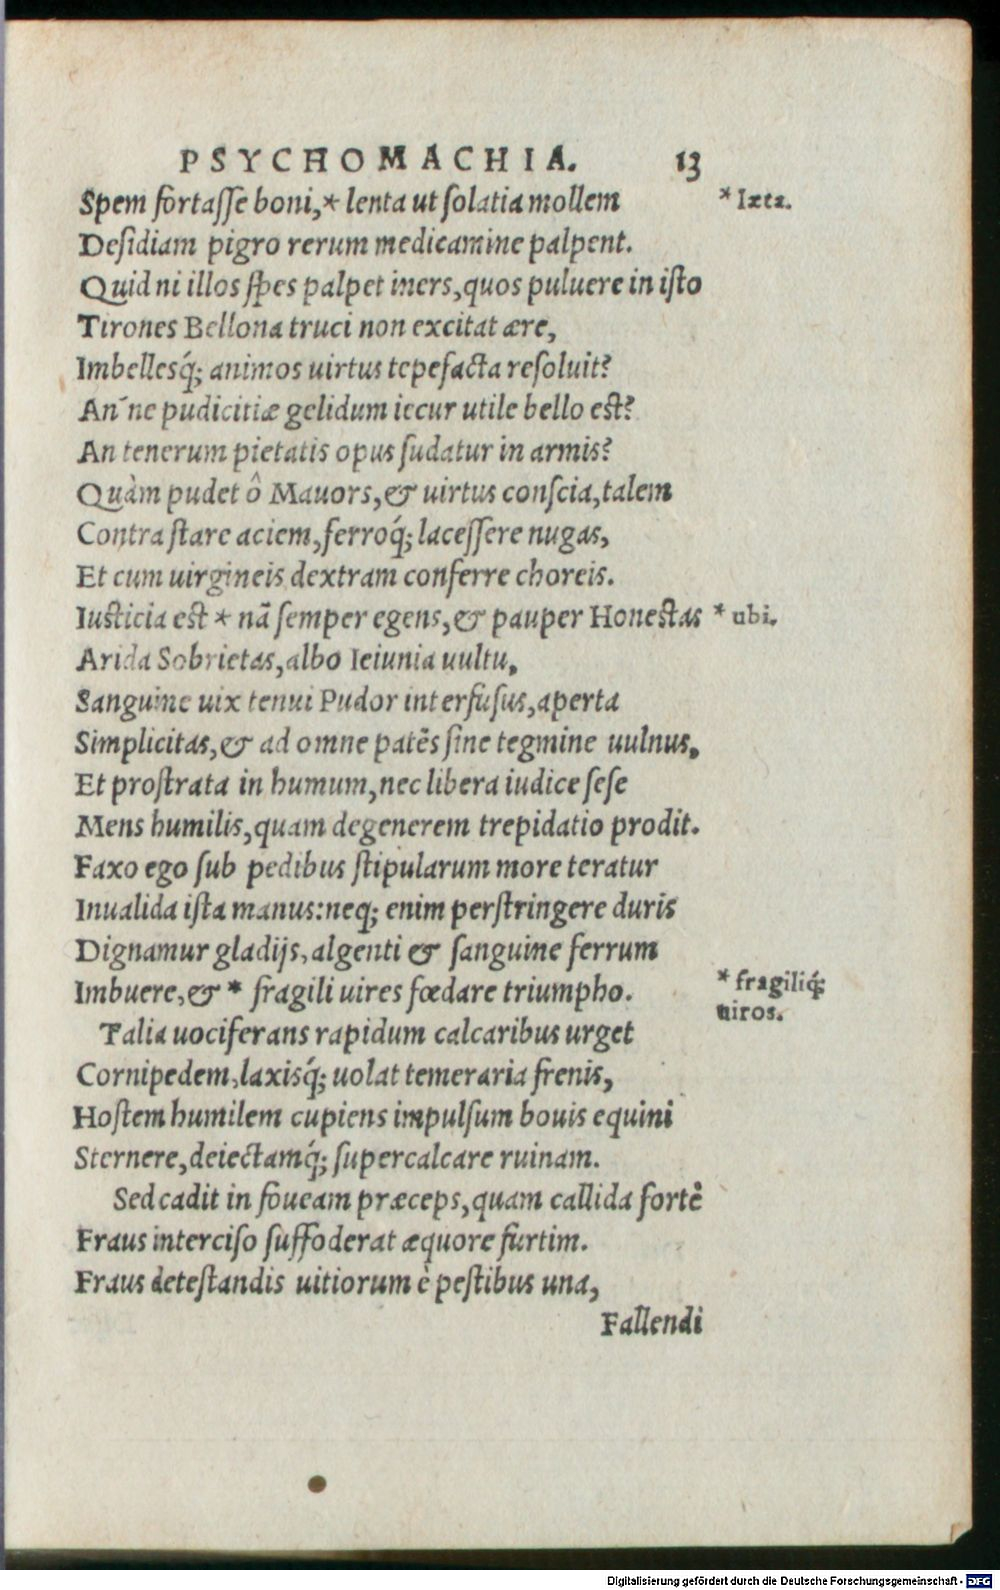 PSYCHOMACHIA. 13
Spem fortaſſe boni,* lenta ut ſolatia mollem * læta.
Deſidiam pigro rerum medicamine palpent.
Quid ni illos ſpes palpet iners, quos puluere in iſto
Tirones Bellona truci non excitat ære,
Imbellesq́; animos uirtus tepefacta reſoluit?
An´ne pudicitiæ gelidum iecur utile bello eſt?
An tenerum pietatis opus ſudatur in armis?
Quàm pudet ô Mauors, & uirtus conſcia, talem
Contra ſtare aciem, ferroq́; laceſſere nugas,
Et cum uirgineis dextram conferre choreis.
Iuſticia eſt * nā ſemper egens, & pauper Honeſtas * ubi.
Arida Sobrietas, albo Ieiunia uultu,
Sanguine uix tenui Pudor interfuſus, aperta
Simplicitas, & ad omne patēs ſine tegmine uulnus,
Et proſtrata in humum, nec libera iudice ſeſe
Mens humilis, quam degenerem trepidatio prodit.
Faxo ego ſub pedibus ſtipularum more teratur
Inualida iſta manus: neq; enim perſtringere duris
Dignamur gladijs, algenti & ſanguine ferrum
Imbuere, & * fragili uires fœdare triumpho. * fragiliq́;
uiros.
Talia uociferans rapidum calcaribus urget
Cornipedem, laxisq́; uolat temeraria frenis,
Hoſtem humilem cupiens impulſum bouis equini
Sternere, deiectamq́; ſupercalcare ruinam.
Sed cadit in foueam præceps, quam callida fortè
Fraus interciſo ſuffoderat æquore furtim.
Fraus deteſtandis uitiorum è peſtibus una,
Fallendi
Digitalisierung gefördert durch die Deutsche Forschungsgemeinschaft - DFG